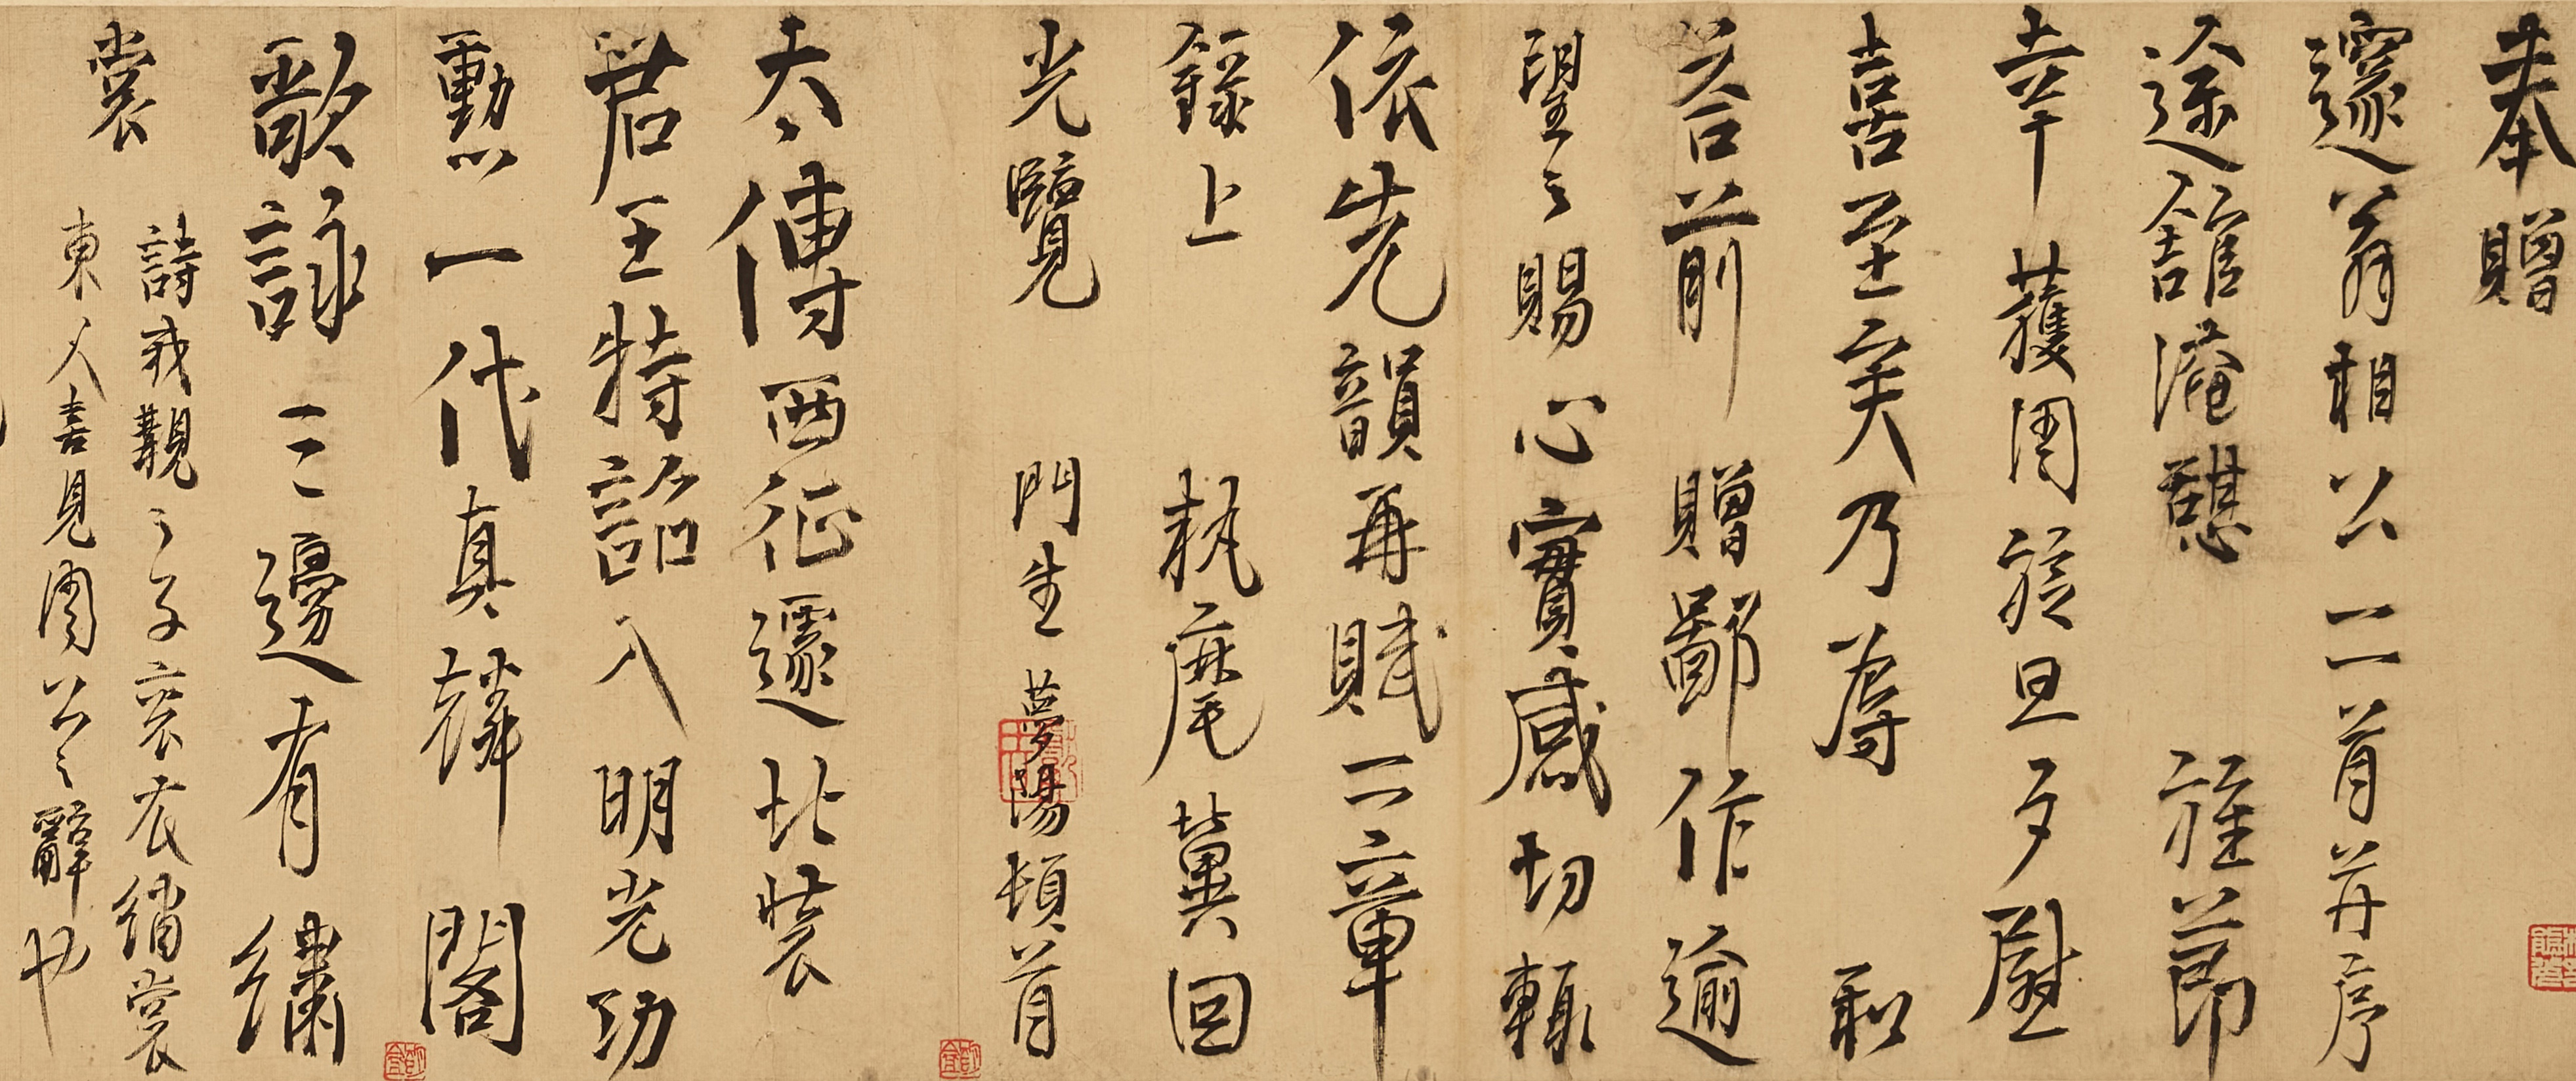 奉贈
邃翁相公二首并序
途館淹憩 旌節
幸獲周旋旦夕慰
喜至矣乃辱 和
答前贈鄙作逾
望之賜心實感切輒
依先韻再賦二章
錄上 執麾冀回
光覽 門生夢陽頓首
太傅西征還北裝
君王特詔入明光功
勳一代真麟閣
歌詠三邊有繡
裳
詩我覯之子袞衣繡裳
東人喜見周公之辭也